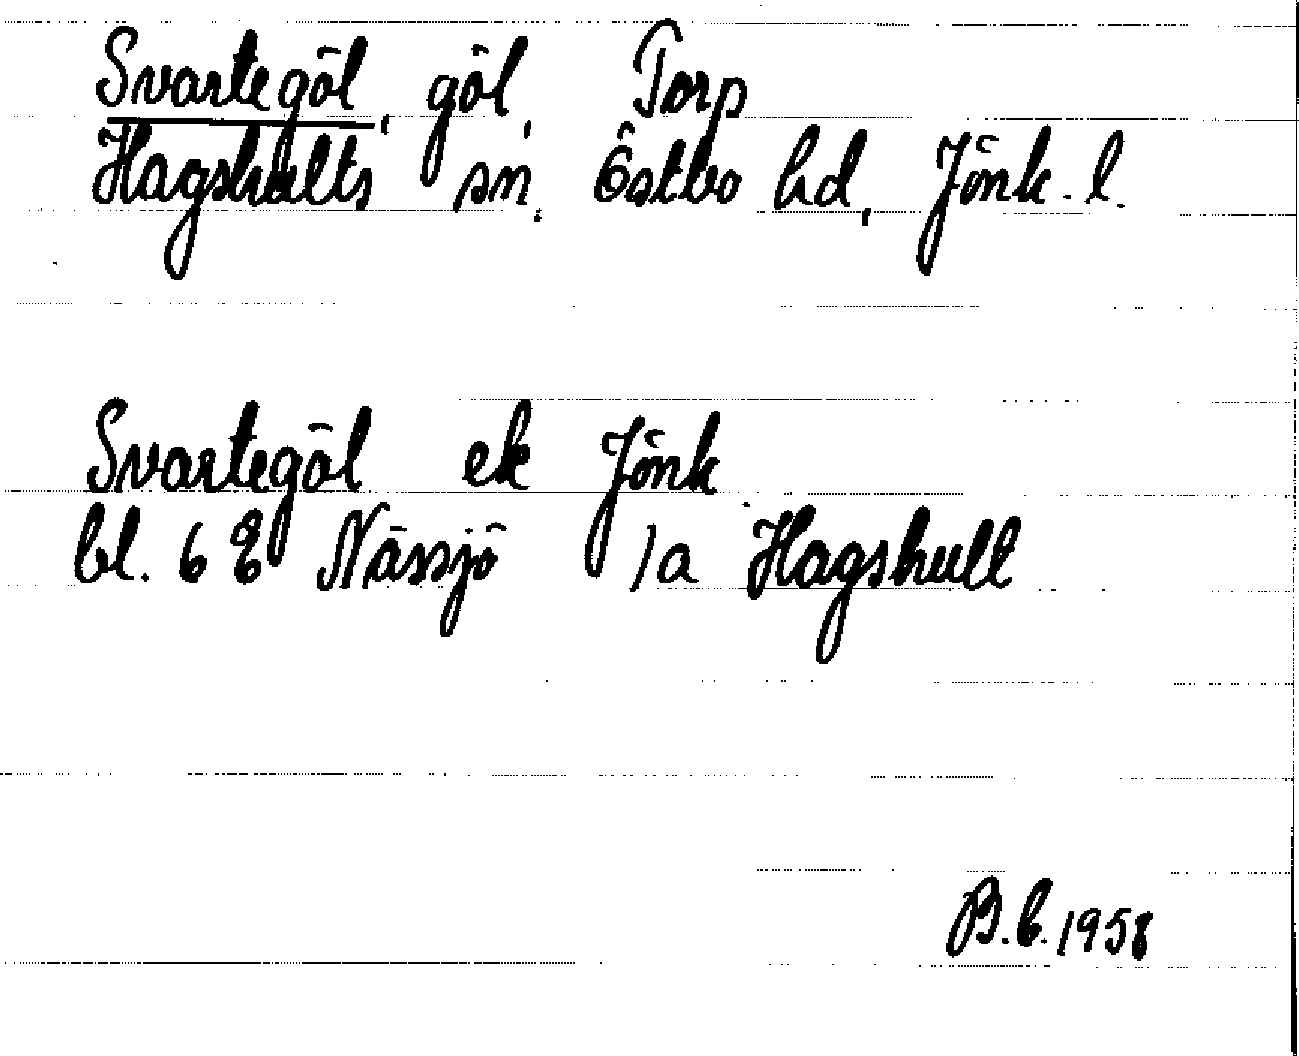 Svartegöl, göl, Torp
Hagshults sn, Östbo hd, Jönk. l.
Svartegöl ek Jönk.
bl. 6 E Nässjö 1a Hagshult
B.C. 1958